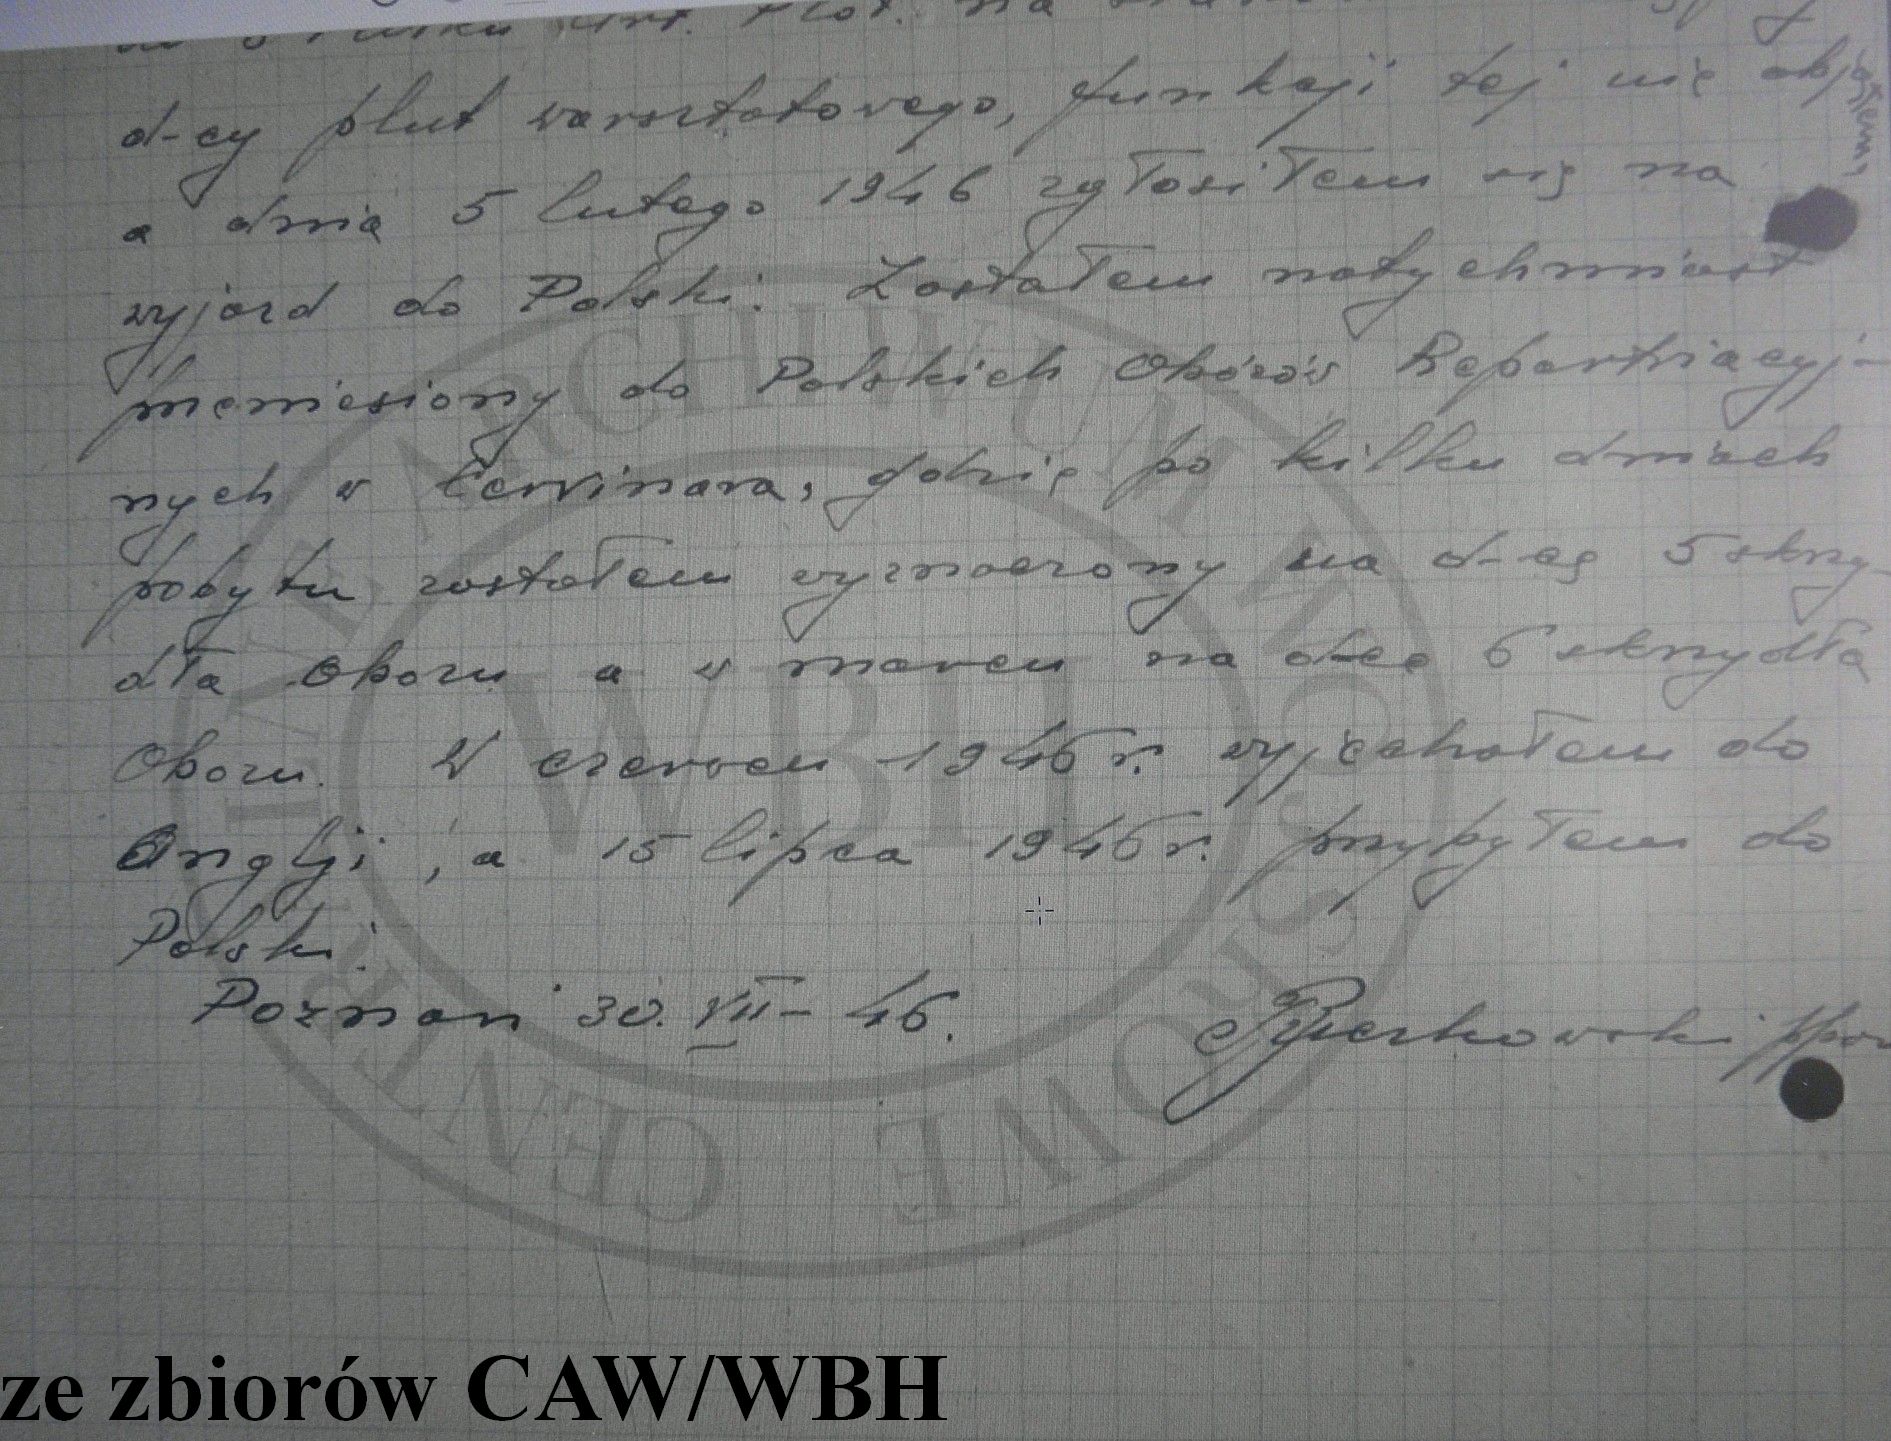 Art. Plot. na
d-cy plut warsztatowego, funkcji tej nie objąłem,
a dnia 5 lutego 1946 zgłosiłem się na
wyjazd do Polski. Zostałem natychmiast
przeniesiony do Polskich Obozów Repartriacyj-
nych w Cervinara, gdzie po kilku dniach
pobytu zostałem wyznaczony na d-cę 5 skrzy-
dła Obozu a w marcu na d-cę 6 skrzydła
Obozu. W czerwcu 1946 r. wyjechałem do
Anglji, a 15 lipca 1946 r. przybyłem do
Polski.
Poznań 30. VII - 46.
ppor
CENTRALNE ARCHIWUM WOJSKOWE
WBH
ze zbiorów CAW/WBH